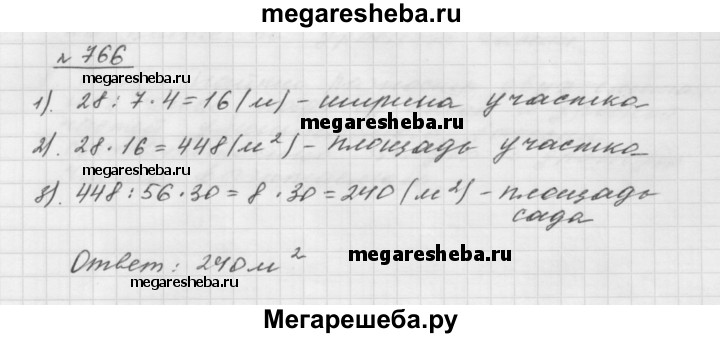 megaresheba.ru
№ 766
megaresheba.ru
1). 28 : 7 · 4 = 16 (м) - ширина участка
megaresheba.ru
2). 28 · 16 = 448 (м²) - площадь участка
3). 448 : 56 · 30 = 8 · 30 = 240 (м²) - площадь
сада
Ответ : 240 м²
megaresheba.ru
megaresheba.ru
Мегарешеба.ру